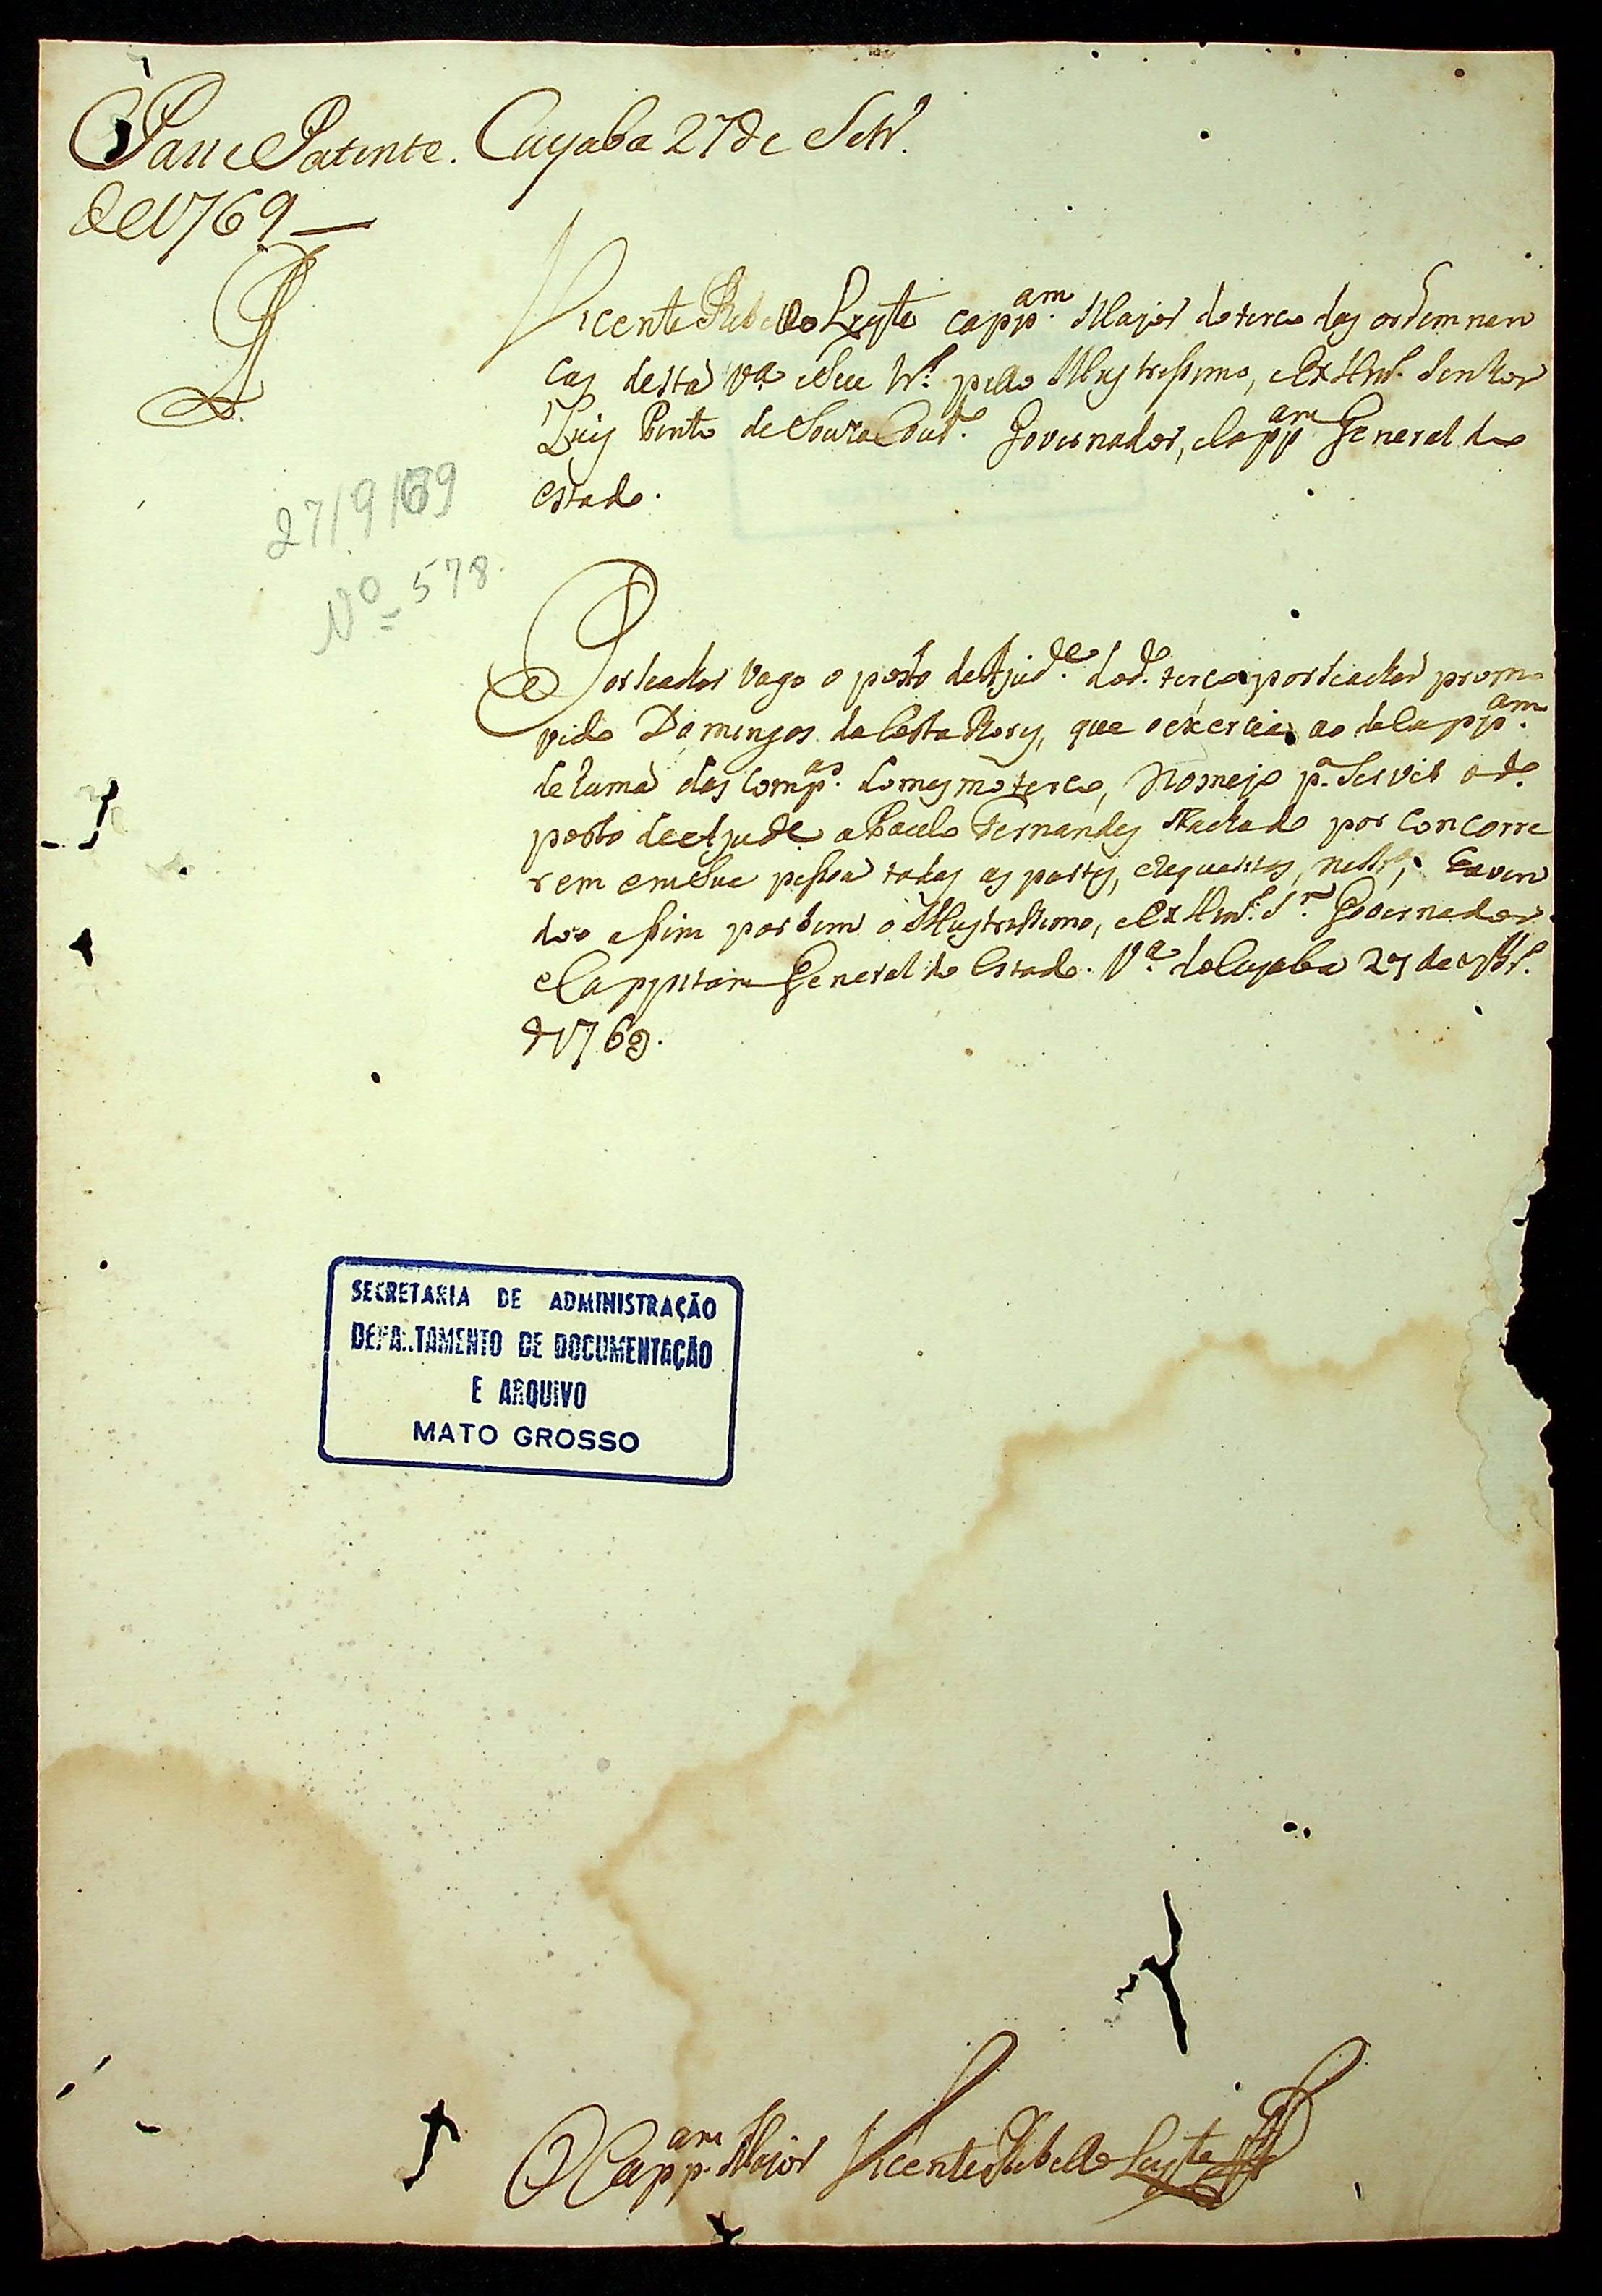 Passe Patente. Cuyaba 27 de Setr.º
de 1769 —
Vicente Rebello Leyte capp.am Major do terco das ordemnan
cas desta v.a e seu tr.º pello Illustrissimo, e Ex.mo Senhor
Luis Pinto de Souza Cout.º Governador, e Capp.am General do
estado.
27/9/69
Nº 578.
Por se achar vago o posto de Ajud.e do d.º terço por se achar promo
vido Domingos da Costa que o exercia, ao de Capp.am
de huma das Comp.as do mesmo terco, Nomejo p.a servir o d.º
posto de Ajud.e a Fernandes Machado por concorre
rem em sua pessoa todas as partes, e requesitos, haven
do o assim por bem o Illustrissimo, e Ex.mo S.r Governador
e Cappitam General do Estado. V.a do Cuyaba 27 de 7br.º
d 1769.
SECRETARIA DE ADMINISTRAÇÃO
DEPARTAMENTO DE DOCUMENTAÇÃO
E ARQUIVO
MATO GROSSO
O Capp.am Major Vicente Rebello Leyte